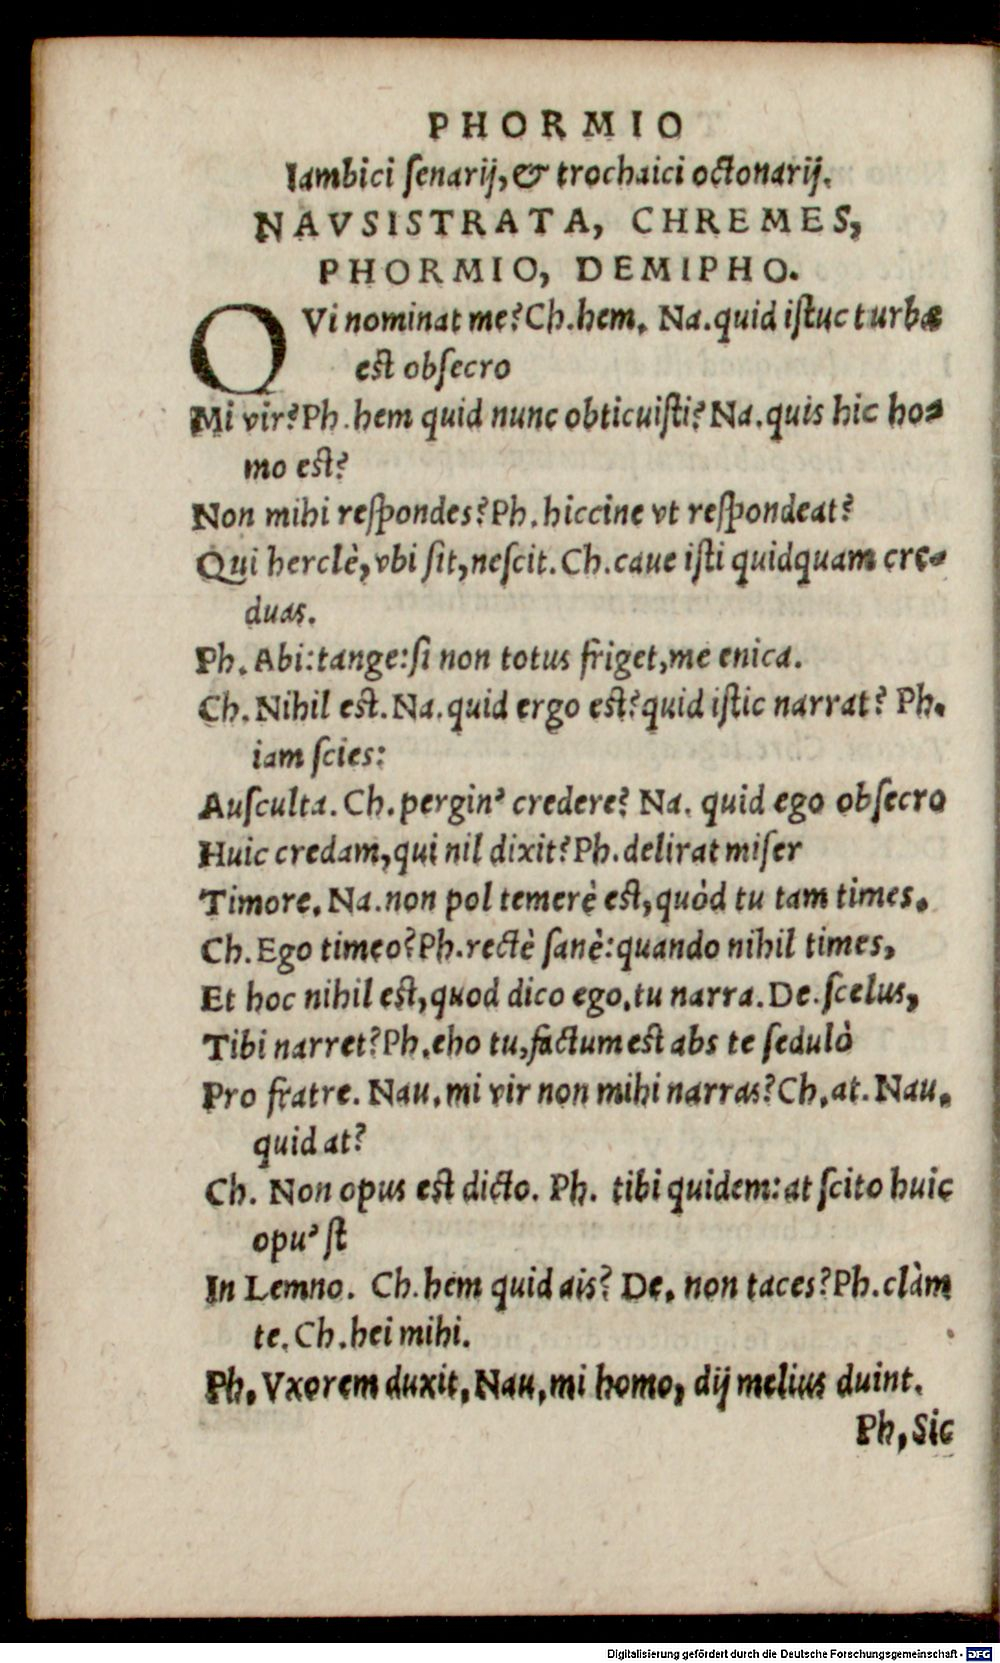 PHORMIO
Iambici ſenarij, & trochaici octonarij.
NAVSISTRATA, CHREMES,
PHORMIO, DEMIPHO.
OVi nominat me? Ch. hem. Na. quid iſtuc turbæ
est obſecro
Mi vir? Ph. hem quid nunc obticuiſti? Na. quis hic ho-
mo est?
Non mihi reſpondes? Ph. hiccine vt reſpondeat?
Qui herclè, vbi ſit, neſcit. Ch. caue iſti quidquam cre-
duas.
Ph. Abi: tange: ſi non totus friget, me enica.
Ch. Nihil est. Na. quid ergo est? quid iſtic narrat? Ph.
iam ſcies:
Auſculta. Ch. pergin' credere? Na. quid ego obſecro
Huic credam, qui nil dixit? Ph. delirat miſer
Timore. Na. non pol temerè est, quòd tu tam times.
Ch. Ego timeo? Ph. rectè ſanè: quando nihil times,
Et hoc nihil est, quod dico ego, tu narra. De. ſcelus,
Tibi narret? Ph. eho tu, factum est abs te ſedulò
Pro fratre. Nau. mi vir non mihi narras? Ch. at. Nau.
quid at?
Ch. Non opus est dicto. Ph. tibi quidem: at ſcito huic
opu' ſt
In Lemno. Ch. hem quid ais? De. non taces? Ph. clàm
te. Ch. hei mihi.
Ph. Vxorem duxit. Nau. mi homo, dij melius duint.
Ph, Sic
Digitalisierung gefördert durch die Deutsche Forschungsgemeinschaft - DFG